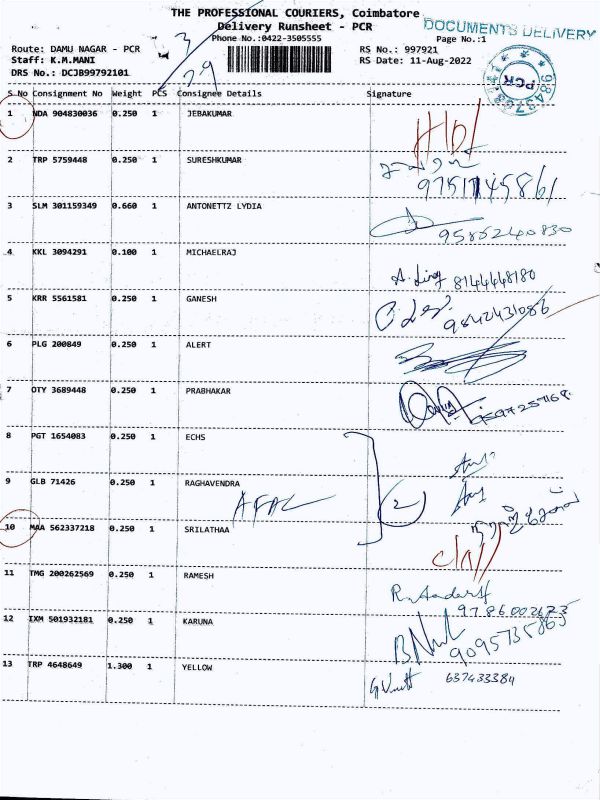 THE PROFESSIONAL COURIERS, Coimbatore
Delivery Runsheet - PCR
DOCUMENTS DELIVERY
Phone No.:0422-3505555
Page No.:1
Route: DAMU NAGAR - PCR
RS No.: 997921
Staff: K.M.MANI
RS Date: 11-Aug-2022
DRS No.: DCJB99792101
3
29
PCR
S No Consignment No Weight PCS Consignee Details Signature
1 NDA 904830036 0.250 1 JEBAKUMAR
2 TRP 5759448 0.250 1 SURESHKUMAR
9751745861
3 SLM 301159349 0.660 1 ANTONETTZ LYDIA
9585240830
4 KKL 3094291 0.100 1 MICHAELRAJ
8144448180
5 KRR 5561581 0.250 1 GANESH
9842431086
6 PLG 200849 0.250 1 ALERT
7 OTY 3689448 0.250 1 PRABHAKAR
8 PGT 1654083 0.250 1 ECHS
9 GLB 71426 0.250 1 RAGHAVENDRA
AFAC
2
10 MAA 562337218 0.250 1 SRILATHAA
11 TMG 200262569 0.250 1 RAMESH
9786002623
12 IXM 501932181 0.250 1 KARUNA
9095735865
13 TRP 4648649 1.300 1 YELLOW
637433384